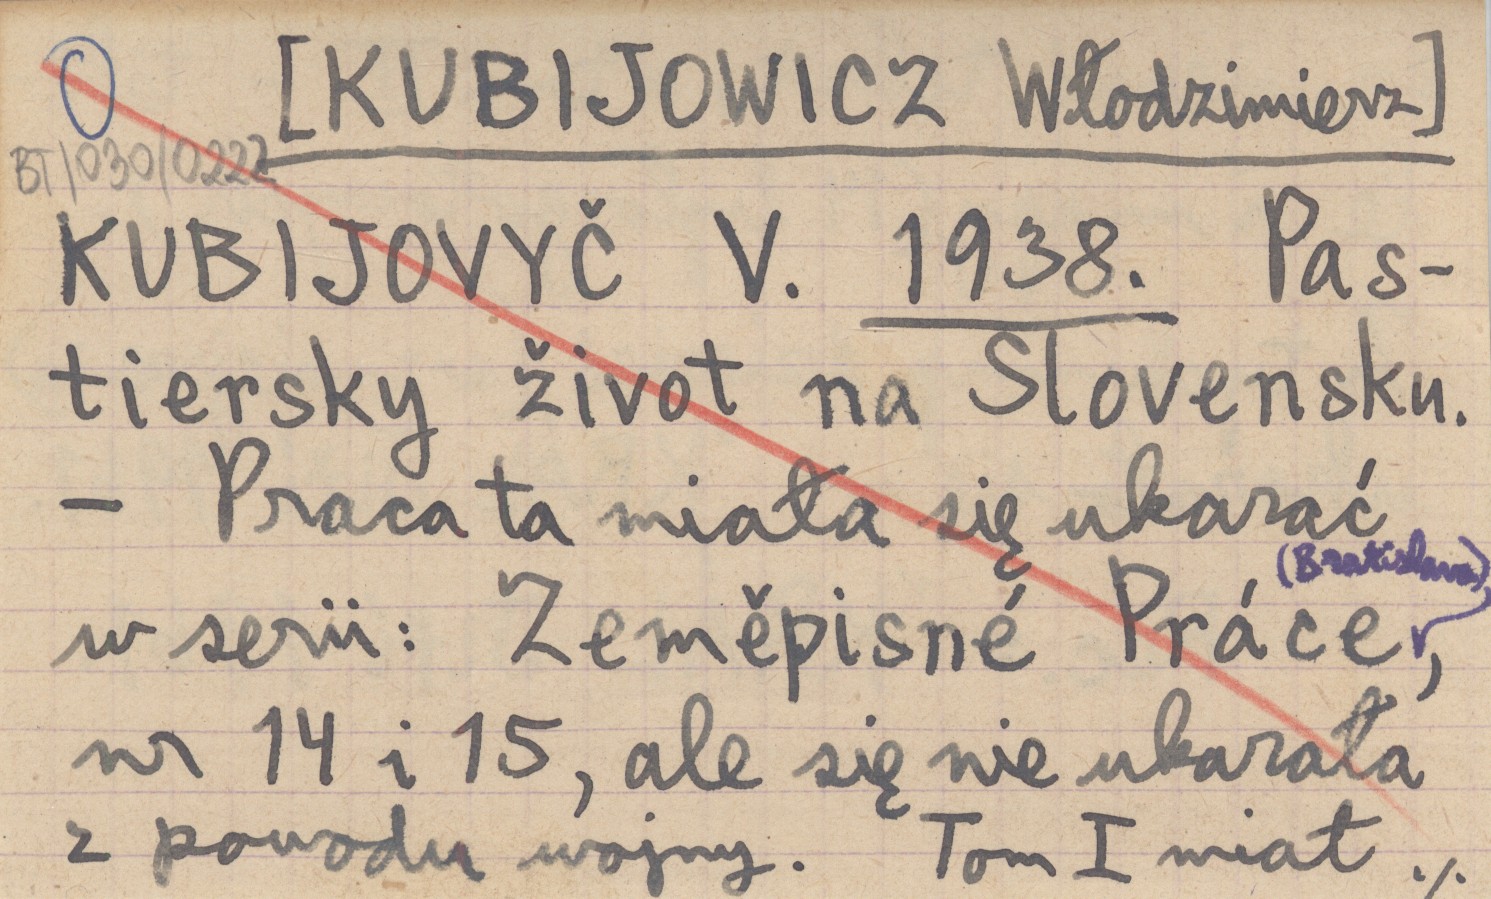 [KUBIJOWICZ Włodzimierz]
BT/030/0222
KUBIJOVYČ V. 1938. Pas-
tiersky život na Slovensku.
- Praca ta miała się ukazać
(Bratislava),
w serii: Zeměpisné Práce,
nr 14 i 15, ale się nie ukazała
z powodu wojny. Tom I miał ./.